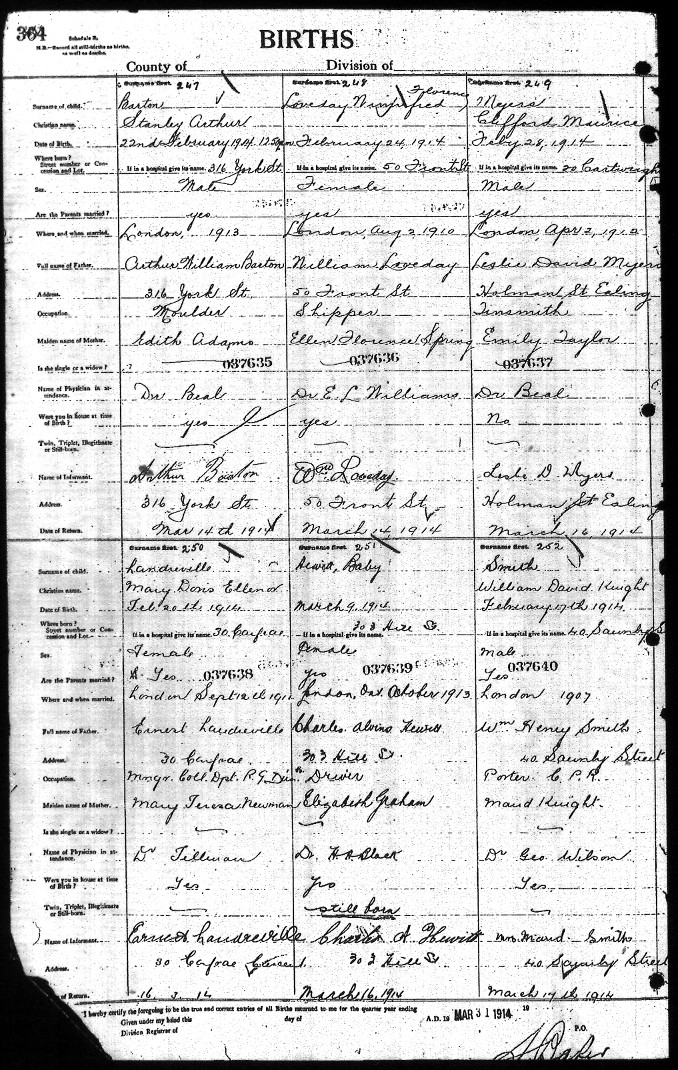 364
Schedule B.
N.B.—Record all still-births as births, as well as deaths.
BIRTHS
County of Division of
Surname first. 247 Surname first. 248 Surname first. 249
Surname of child. Barton Loveday Winnifred Florence Meyers
Christian name. Stanley Arthur Clifford Maurice
Date of Birth. 22nd February 1914. February 24, 1914 Feby 28, 1914
Where born? Street number or Concession and Lot. If in a hospital give its name. 316 York St. If in a hospital give its name. 50 Front St If in a hospital give its name. 30 Cartwright
Sex. Male Female Male
Are the Parents married? yes yes yes
Where and when married. London, 1913 London, Aug 2 1910 London, Apr 2, 1912
Full name of Father. Arthur William Barton William Loveday Leslie David Myers
Address. 316 York St. 50 Front St Holman St Ealing
Occupation. Moulder Shipper Tinsmith
Maiden name of Mother. Edith Adams Ellen Florence Spring Emily Taylor
Is she single or a widow? 037635 037636 037637
Name of Physician in attendance. Dr Beal Dr E. L Williams Dr Beal
Were you in house at time of Birth? yes yes No
Twin, Triplet, Illegitimate or Still-born.
Name of Informant. Arthur Barton Wm Loveday Leslie D Myers
Address. 316 York St. 50 Front St Holman St Ealing
Date of Return. Mar 14th 1914 March 14, 1914 March 16, 1914
Surname first. 250 Surname first. 251 Surname first. 252
Surname of child. Landreville Hewitt, Baby Smith
Christian name. Mary Doris Ellenor William David Knight
Date of Birth. Feb 20th 1914 March 9, 1914 February 17th 1914
Where born? Street number or Concession and Lot. If in a hospital give its name. 30 Carfrae 303 Hill St If in a hospital give its name. 40 Saunby S
Sex. Female Female Male
Are the Parents married? Yes 037638 yes 037639 Yes 037640
Where and when married. London Sept 12th 191 London, Ont. October 1913 London 1907
Full name of Father. Ernest Landreville Charles Alvino Hewitt Wm Henry Smith
Address. 30 Carfrae 303 Hill St 40 Saunby Street
Occupation. Mngr. Coll. Dpt. R G Driver Porter C. P. R.
Maiden name of Mother. Mary Teresa Newman Elizabeth Graham Maud Knight
Is she single or a widow?
Name of Physician in attendance. Dr Tillman Dr H A Black Dr Geo. Wilson
Were you in house at time of Birth? Yes Yes Yes
Twin, Triplet, Illegitimate or Still-born. still born
Name of Informant. Ernest Landreville Charles A Hewitt Mrs Maud Smith
Address. 30 Carfrae Crescent 303 Hill St 40 Saunby Street
of Return. 16. 3. 14 March 16, 1914 March 17th 1914
I hereby certify the foregoing to be the true and correct entries of all Births returned to me for the quarter year ending 19
Given under my hand this day of A.D. 19 MAR 31 1914
Division Registrar of P.O.